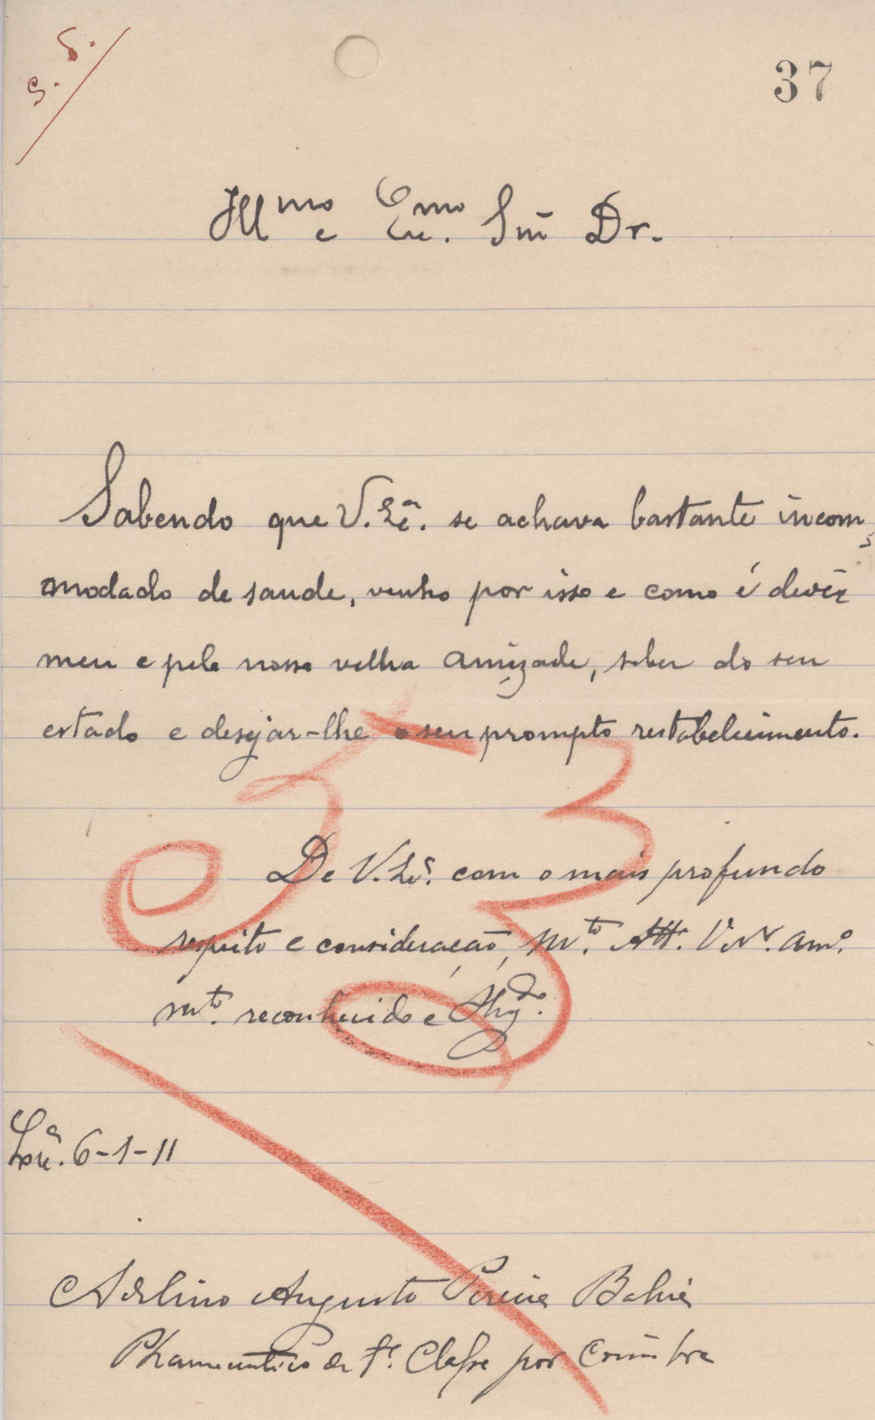 S. S.
37
Illmo e Exmo. Snr Dr.
Sabendo que V. Exa. se achava bastante incom
modado de saude, venho por isso e como é devêr
meu e pela nossa velha amizade, saber do seu
estado e desejar-lhe o seu prompto restabelecimento.
53
De V. Exa. com o mais profundo
respeito e consideração, Mto. Att. Vnr. Amo.
mto. reconhecido e Obgdo.
6-1-11
Adelino Augusto Pereira Bahia
Pharmaceutico de 1ª. Classe por Coimbra